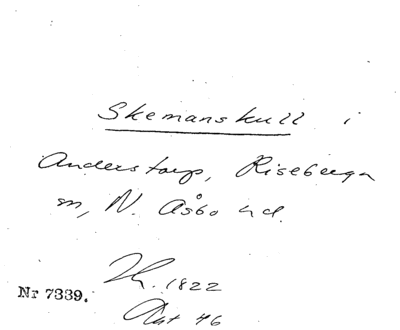 Skemanskull i
Anderstorp, Riseberga
sn, N. Åsbo hd.
1822
Nr 7339.
46